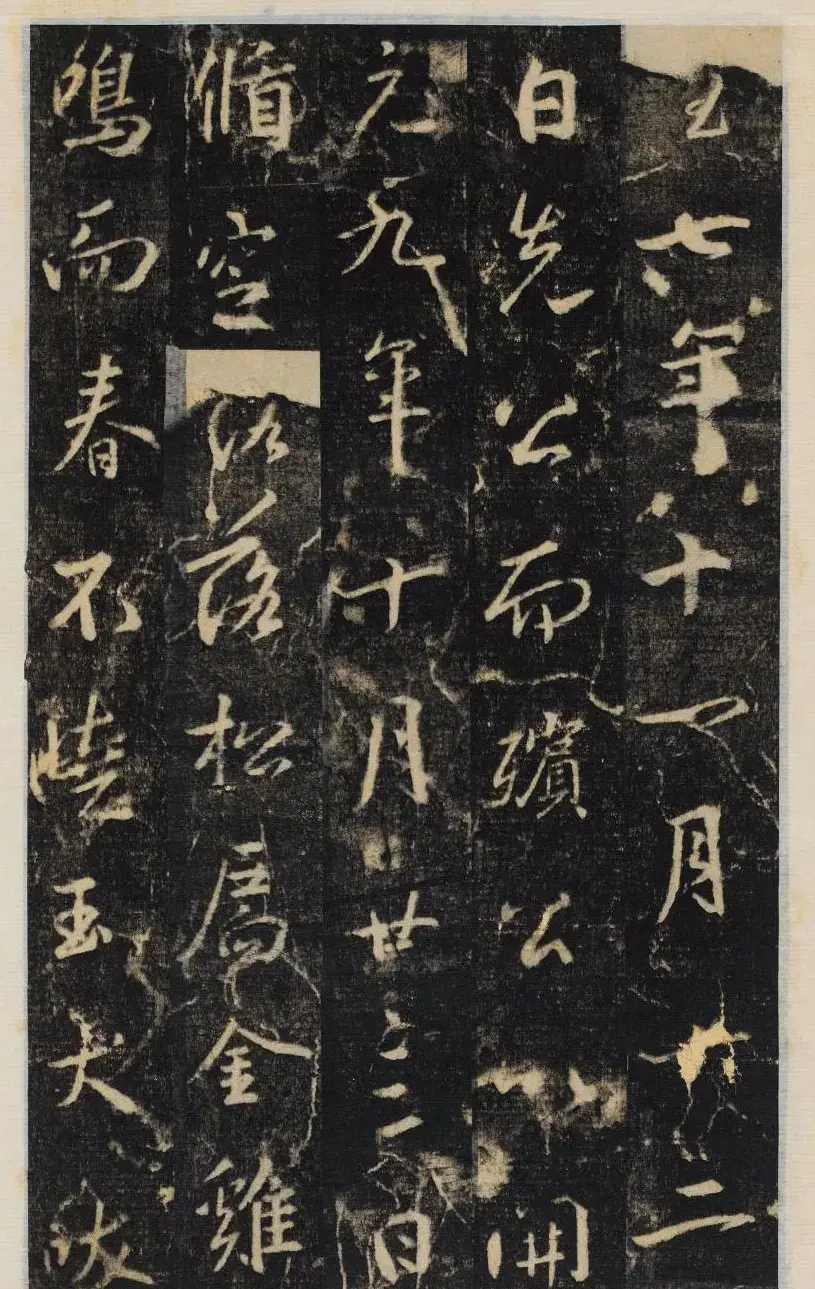 七年十一月廿二
日先公而殯公以開
元九年十月廿三日
脩空落松扃金雞
鳴而春不曉玉犬吠